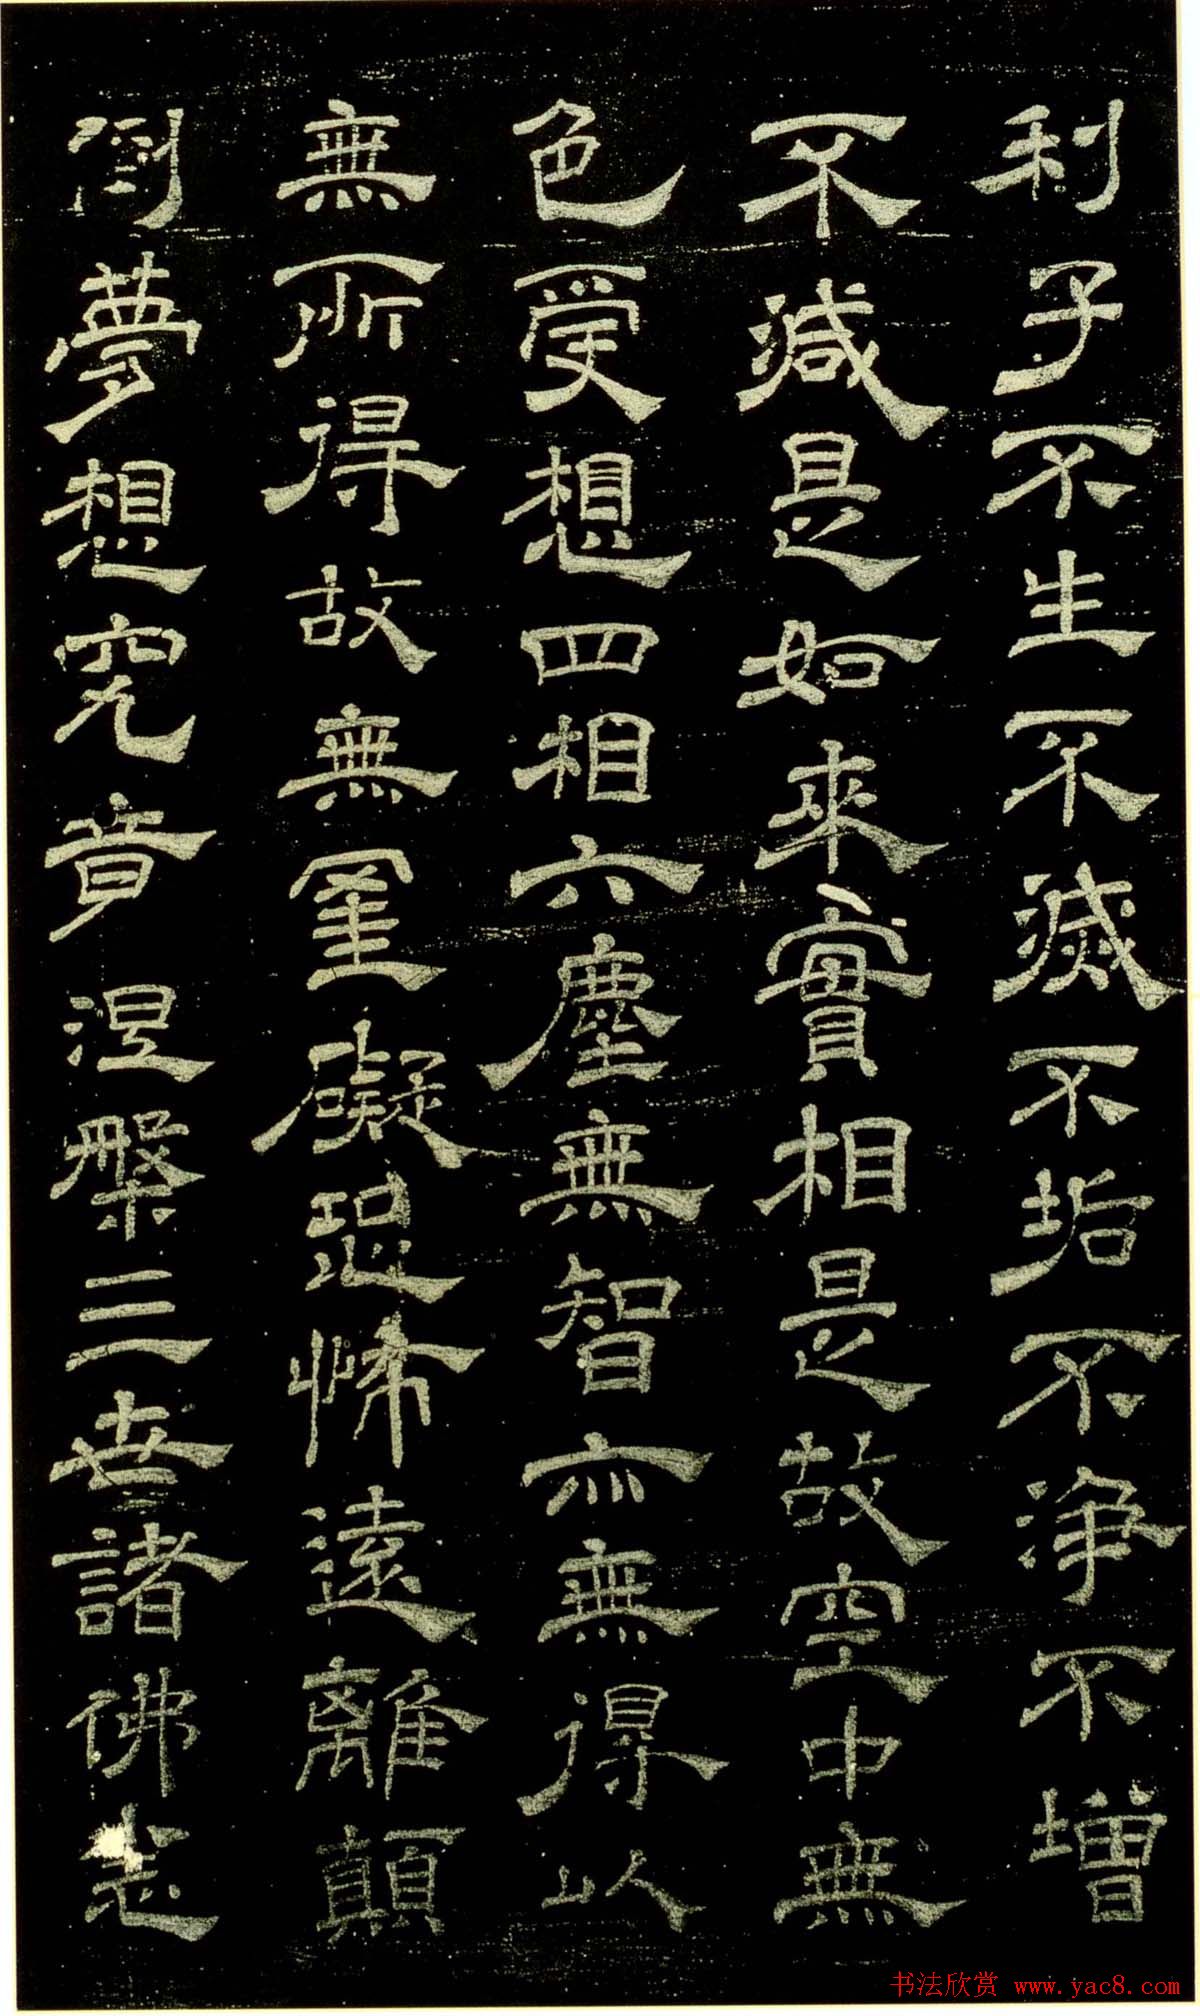 利子不生不滅不垢不淨不增
不減是如來實相是故空中無
色受想四相六塵無智亦無得以
無所得故無罣礙恐怖遠離顛
倒夢想究竟涅槃三世諸佛
书法欣赏 www.yac8.com